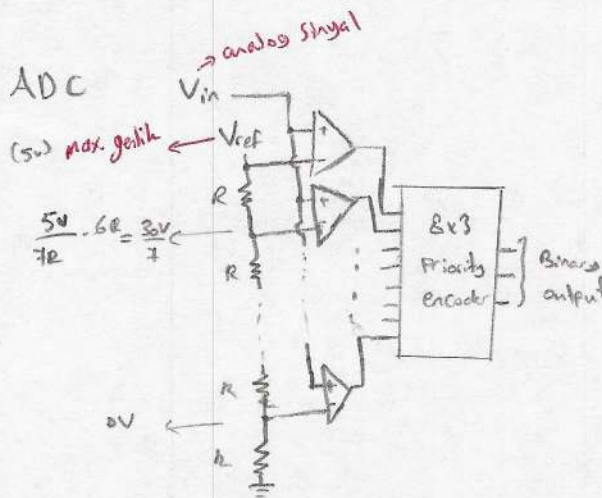 analog Sinyal
ADC
Vin
(5v) max. gerilim
Vref
R
5v/7R · 6R = 30V/7
R
R
0V
R
+ -
+ -
+ -
8x3
Priority
encoder
Binary
output